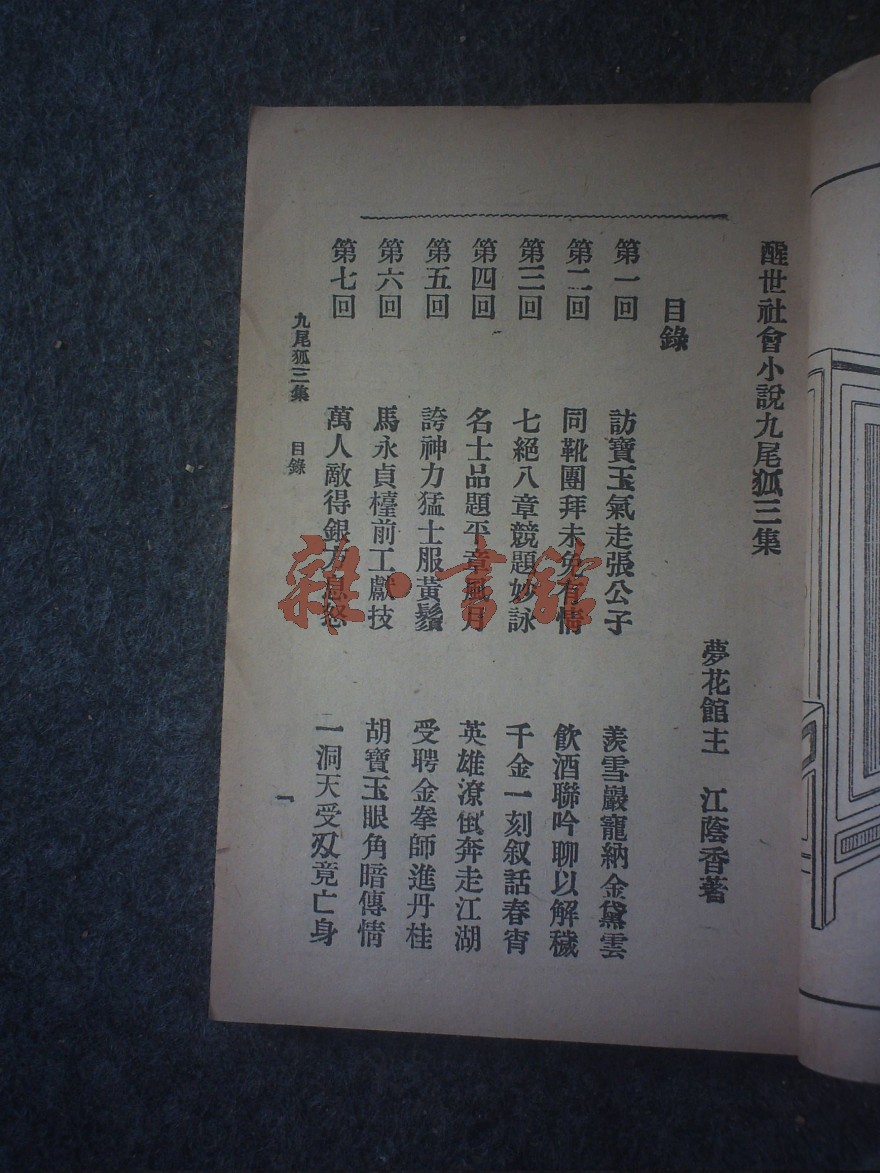 醒世社會小說九尾狐三集
夢花館主 江蔭香著
目錄
第一回 訪寶玉氣走張公子 羨雪巖寵納金黛雲
第二回 同靴團拜未免有情 飲酒聯吟聊以解穢
第三回 七絕八章競題妙詠 千金一刻叙話春宵
第四回 名士品題平章風月 英雄潦倒奔走江湖
第五回 誇神力猛士服黃鬚 受聘金拳師進丹桂
第六回 馬永貞檯前工獻技 胡寶玉眼角暗傳情
第七回 萬人敵得銀方息怒 一洞天受刄竟亡身
九尾狐三集 目錄
一
雜·書館